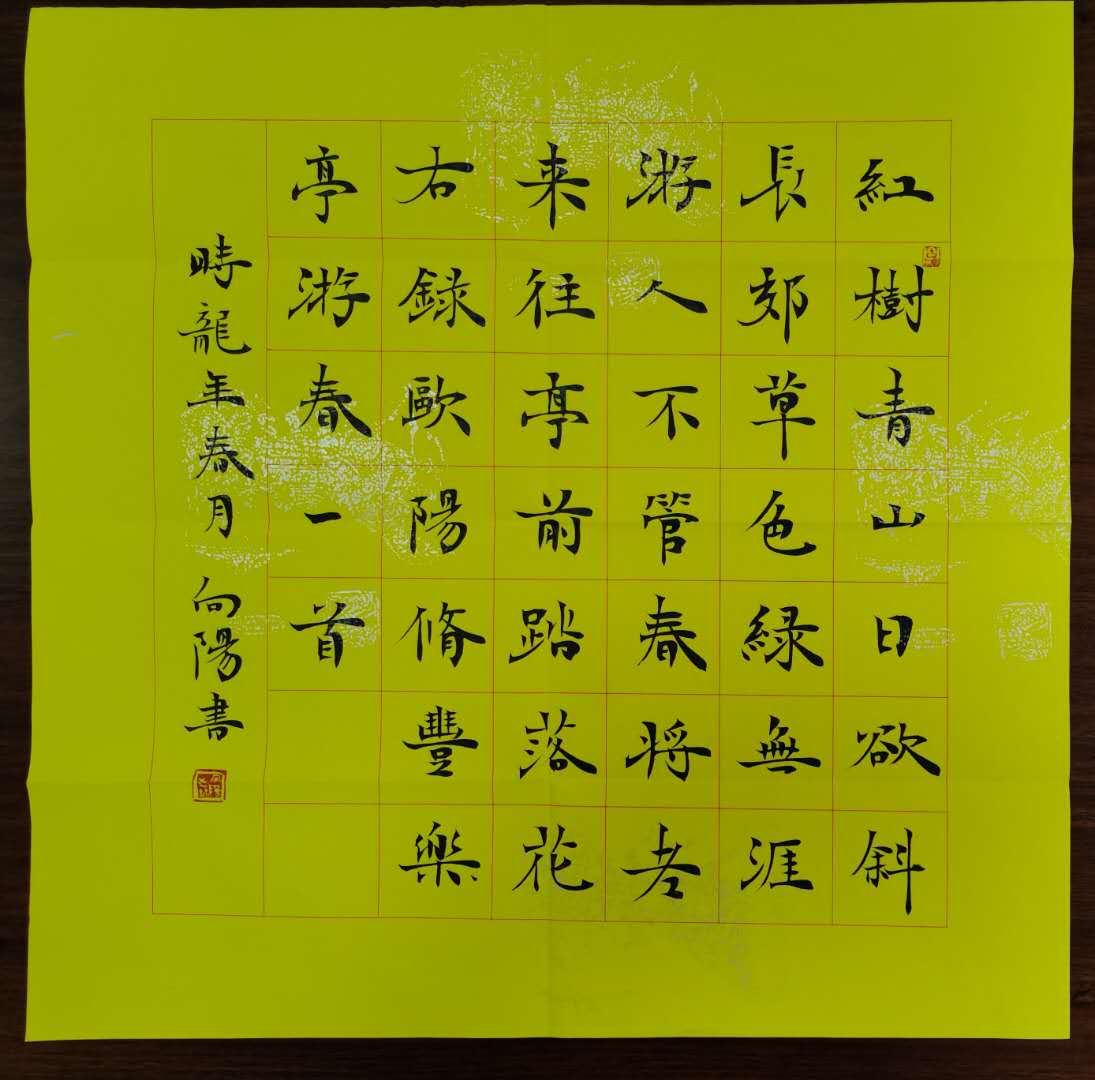 紅樹青山日欲斜
長郊草色緑無涯
游人不管春將老
来往亭前踏落花
右錄歐陽脩豐樂
亭游春一首
時龍年春月向陽書